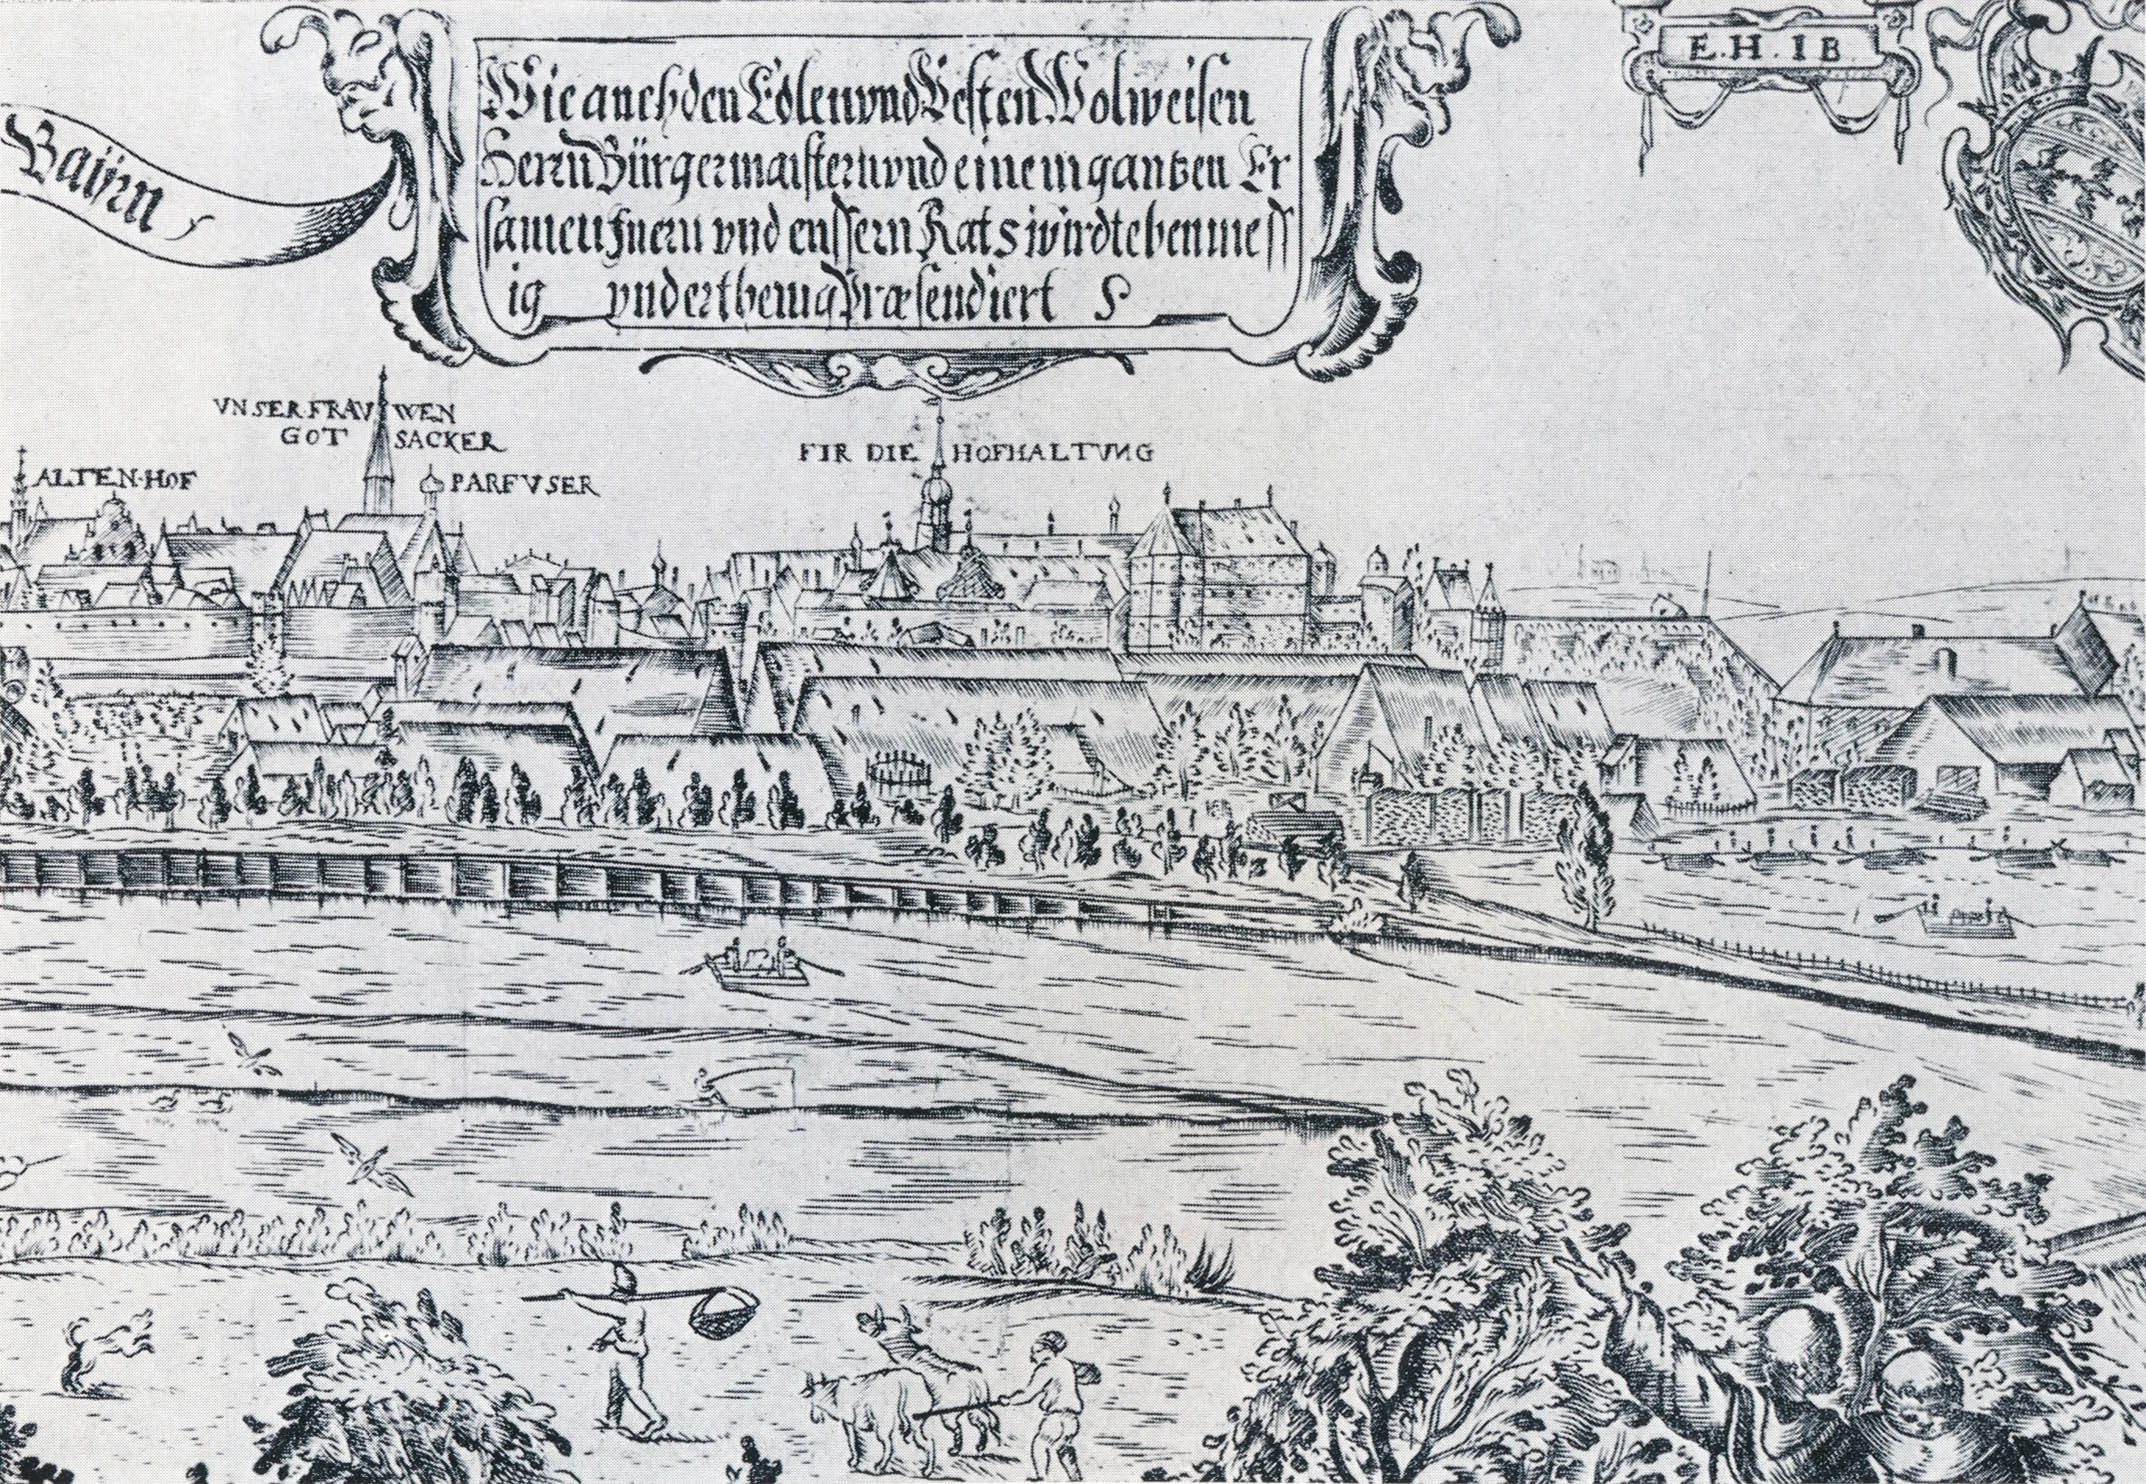 Wie auch den Edlen vnd Vesten Wolweisen
Herrn Bürgermaistern vnd einem gantzen Er
samen Jnern vnd eussern Rats würdt ebenmess
ig vnderthenig Præsendiert
E. H. I B
Baÿrn
VNSER FRAVWEN
GOTSACKER
ALTEN·HOF
PARFVSER
FIR DIE HOFHALTVNG